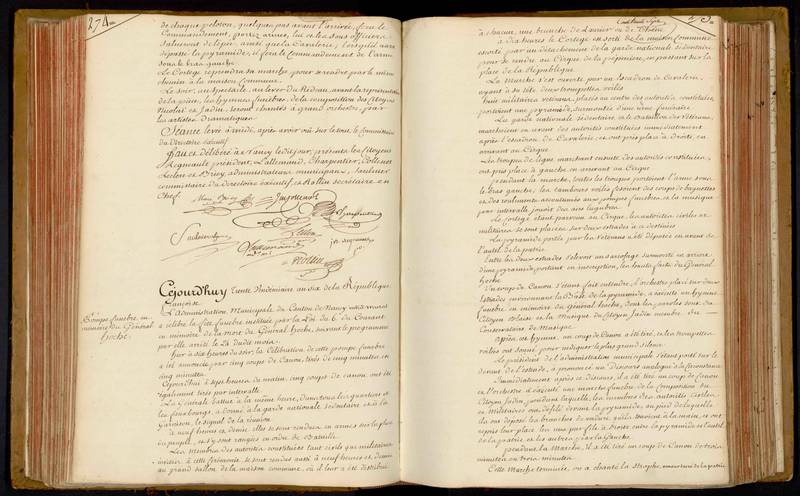 274
de chaque peloton, quelques pas avant l'arrivée, fera le
Commandement, portez armes, lui et les sous officiers
salueront de l'épée, ainsi que la Cavalerie; lorsqu'il aura
dépassé la pyramide, il fera le Commandement de l'arme
sous le bras gauche.
Le Cortège reprendra sa marche pour se rendre par le même
chemin à la maison Commune.
Le soir, au spectacle, au lever du Rideau, avant la représentation
de la pièce, les hymnes funèbres, de la composition des Citoyens
Nicolet et Jadin, seront chantés à grand orchestre, par
les artistes Dramatiques.
Séance levée à midi, après avoir ouï sur le tout le Commissaire
du Directoire exécutif.
Fait et délibéré à Nancy ledit jour, présents les Citoyens
Regneault président, Lallemand, Charpentier,
Leclerc et Briey, administrateurs municipaux, Saulnier
commissaire du directoire exécutif, et Rollin secrétaire en
Chef.
Pompe funèbre en
mémoire du Général
hoche.
Cejourdhuy trente Vendémiaire an six de la République
française.
L'administration Municipale du Canton de Nancy intra muros
a célébré la fête funèbre instituée par la Loi du 6. du Courant
en mémoire de la mort du Général hoche, suivant le programme
par elle arrêté le 24 dudit mois.
hier à six heures du soir, la Célébration de cette pompe funèbre
a été annoncée par cinq coups de Canon, tirés de cinq minutes en
cinq minutes.
Cejourdhui à sept heures du matin, cinq coups de canon ont été
également tirés par intervalle.
La Générale battue à la même heure, dans tous les quartiers et
les fauxbourgs, a donné à la garde nationale sédentaire et à la
garnison, le signal de la réunion
à neuf heures et demie elles se sont rendues en armes sur la place
du peuple, et s'y sont rangées en ordre de Bataille
Les membres des autorités constituées tant civiles que militaires
invités à cette cérémonie se sont rendus aussi à neuf heures et demie
au grand sallon de la maison commune, où il leur a été distribué
à chacun, une branche de Laurier ou de Chêne
à dix heures le Cortège est sorti de la maison Commune
escorté par un détachement de la garde nationale sédentaire,
pour se rendre au Cirque de la pépinière, en passant sur la
place de la République
La Marche s'est ouverte par un Escadron de Cavalerie,
ayant à sa tête deux trompettes voilés
huit militaires vétérans, placés au centre des autorités constituées
portaient une pyramide, surmontée d'une urne funéraire.
La garde nationale sédentaire, et le Bataillon des Vétérans,
marchoient en avant des autorités constituées immédiatement
après l'escadron de Cavalerie et ont pris place à droite, en
arrivant au Cirque
Les troupes de ligne, marchant ensuite des autorités constituées,
ont pris place à gauche en arrivant au Cirque
pendant la marche, toutes les troupes portoient l'arme sous
le bras gauche, les tambours voilés faisoient des coups de baguettes
et des roulements accoutumés aux pompes funèbres, et la musique
par intervalle jouoit des airs lugubres
Le Cortège étant parvenu au Cirque, les autorités civiles et
militaires se sont placées sur deux estrades à ce destinées
La pyramide portée par les Vétérans a été déposée en avant de
l'autel de la patrie.
Entre les deux estrades s'élevoit un sarcophage surmonté en arrière
d'une pyramide portant en inscription, les hauts faits du Général
hoche
Un coup de Canon s'étant fait entendre, l'orchestre placé sur deux
estrades environnant la Base de la pyramide, a exécuté un hymne
funèbre en mémoire du Général hoche, dont les paroles sont du
Citoyen et la Musique du Citoyen Jadin membre du
Conservatoire de Musique.
après cet hymne, un coup de Canon a été tiré, et les trompettes
voilés ont sonné, pour indiquer le plus grand silence
Le président de l'administration municipale s'étant porté sur le
devant de l'estrade, a prononcé un discours analogue à la Circonstance
Immédiatement après ce discours, il a été tiré un coup de Canon
et l'orchestre a exécuté une marche funèbre de la Composition du
Citoyen Jadin, pendant laquelle, les membres des autorités Civiles
et militaires ont défilé devant la pyramide au pied de laquelle
ils ont déposé les branches de verdure qu'ils tenoient à la main, et ont
repris leur place les uns par file à droite entre la pyramide et l'autel
de la patrie et les autres par la Gauche
pendant la Marche, il a été tiré un coup de Canon de trois
minutes en trois minutes
Cette Marche terminée, on a chanté la strophe,